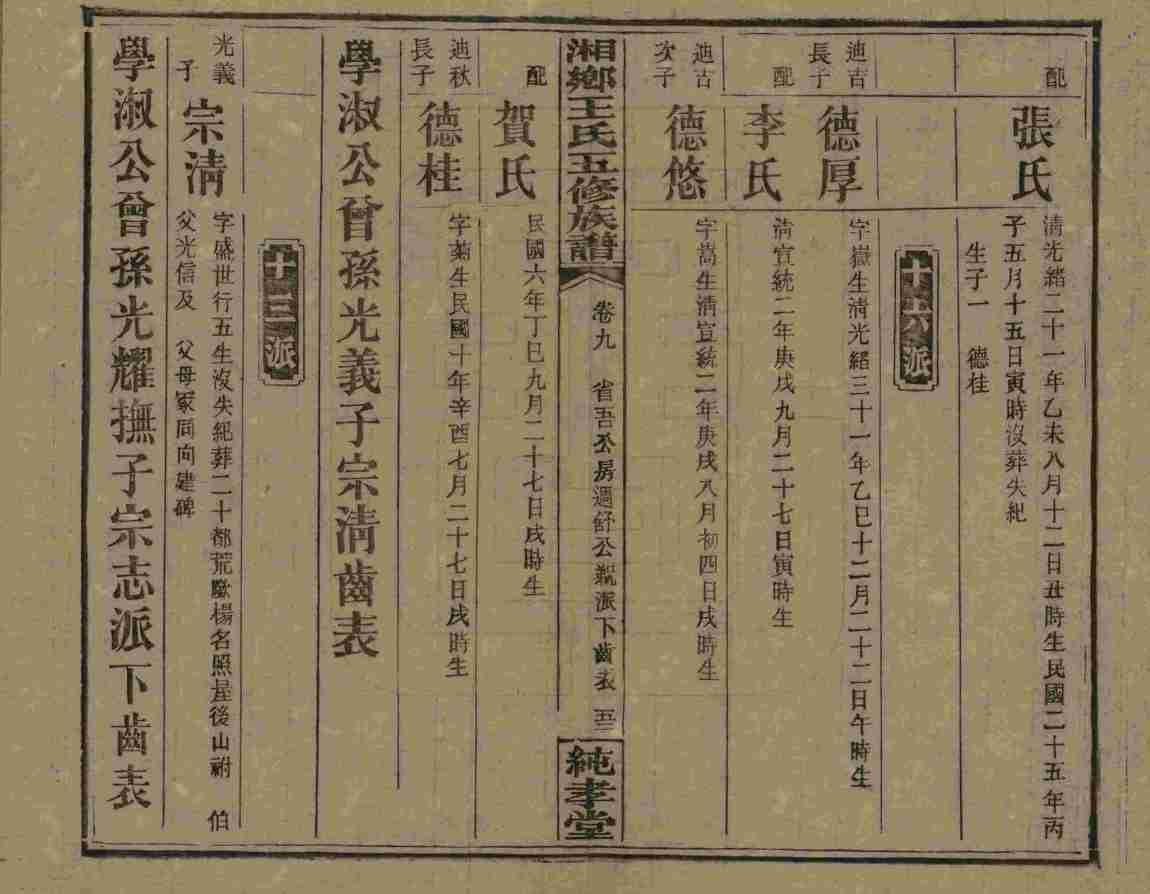 配
張氏
清光緒二十一年乙未八月十二日丑時生民國二十五年丙
子五月十五日寅時沒葬失紀
生子一　德桂
十六派
迪吉
長子
德厚
字嶽生清光緒三十一年乙巳十二月二十二日午時生
配
李氏
清宣統二年庚戌九月二十七日寅時生
迪吉
次子
德悠
字嵩生清宣統二年庚戌八月初四日戌時生
湘鄉王氏五修族譜
卷九　省吾公房遇舒公親派下齒表
純孝堂
配
賀氏
民國六年丁巳九月二十七日戌時生
迪秋
長子
德桂
字菊生民國十年辛酉七月二十七日戌時生
學淑公曾孫光義子宗清齒表
十三派
光義
子
宗清
字盛世行五生沒失紀葬二十都荒墈楊名照屋後山祔　伯
父光信及　父母冢同向建碑
學淑公曾孫光耀撫子宗志派下齒表